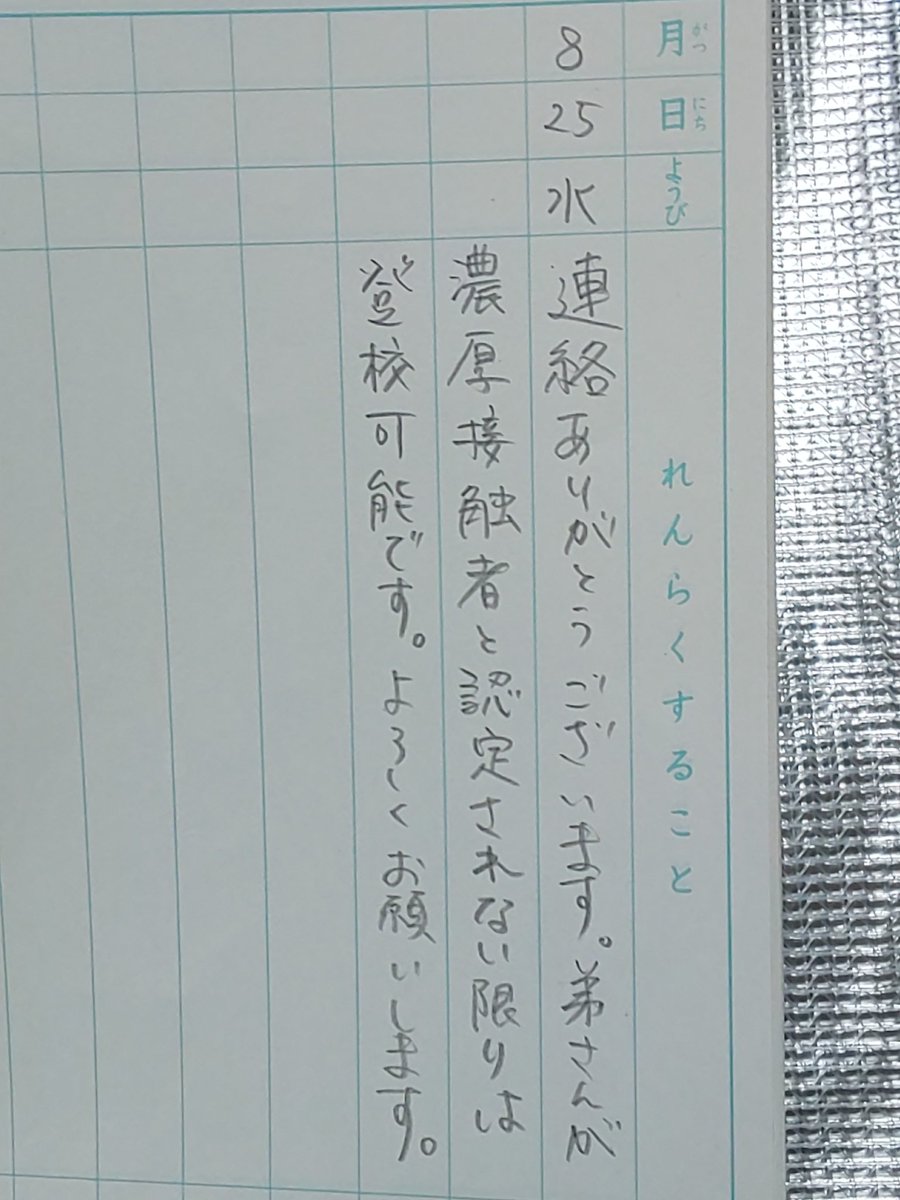 月 がつ
日 にち
ようび
れんらくすること
8
25
水
連絡ありがとうございます。弟さんが
濃厚接触者と認定されない限りは
登校可能です。よろしくお願いします。